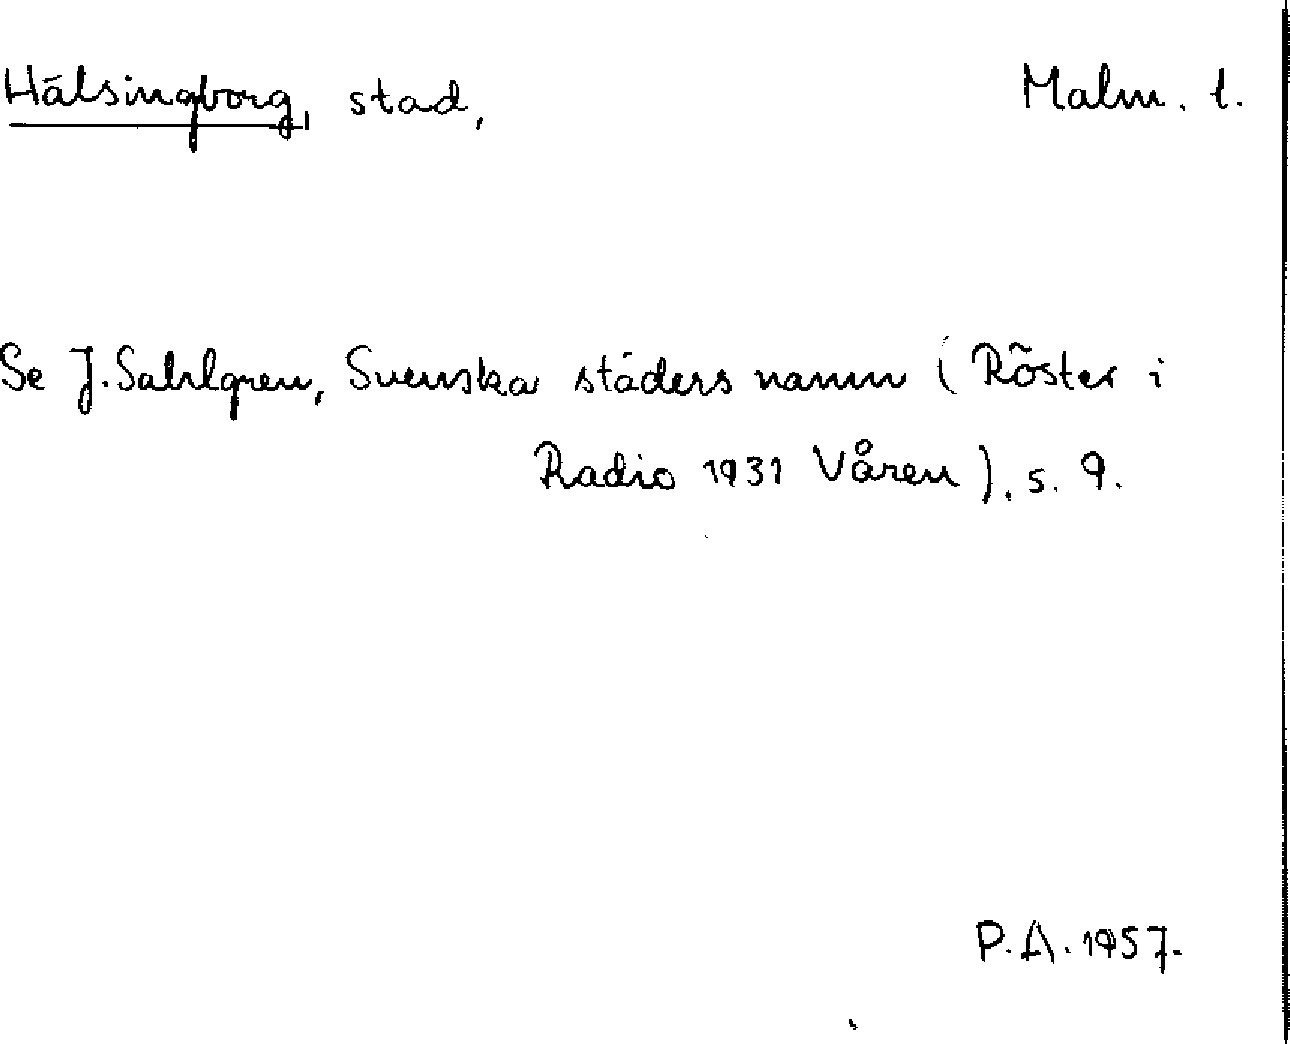 Hälsingborg, stad, Malm. l.
Se J. Sahlgren, Svenska städers namn (Röster i
Radio 1931 Våren), s. 9.
P.A. 1957.